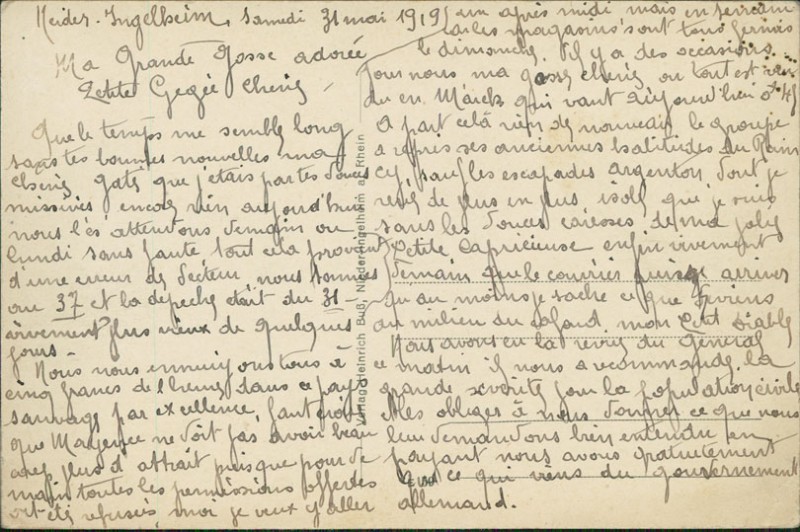 Nieder-Ingelheim, Samedi 31 mai 1919
Ma Grande Gosse adorée
Petite Gégée chérie,
Que le temps me semble long
sans tes bonnes nouvelles ma
chérie gaté que j'étais par tes douces
missives encore rien aujourd'hui
nous les attendons demain ou
lundi sans faute tout cela provient
d'une erreur de secteur nous sommes
au 37 et la dépeche était du 31 -
vivement plus vieux de quelques
jours -
Nous nous ennuyons tous à
cinq francs de l'heure dans ce pays
sauvage par excellence, faut croire
que Mayence ne doit pas avoir beau
avec plus d'attrait puisque pour de
main toutes les permissions offertes
ont été refusés, moi je veux y aller
un après midi mais en semaine
car les magasins sont tous fermés
le dimanche. Il y a des occasions
pour nous ma gosse chérie ou tout est
du en Marck qui vaut aujourd'hui 0f45
A part cela rien de nouveau le groupe
a repris ses anciennes habitudes du
sauf les escapades argenton dont je
rêve de plus en plus isolé que je suis
sans les douces caresses de ma jolie
Petite Capricieuse enfin vivement
demain que le courrier puisse arriver
qu'au moins je sache ce que deviens
au milieu du cafard mon Petit Diable
Nous avons eu la revue du General
ce matin il nous a recommandé la
grande sévérité pour la population civile
Elles obligés à nous donner ce que nous
leur demandons bien entendu en
payant nous avons gratuitement
que ce qui viens du gouvernement
allemand.
Verlag Heinrich Buß, Niederingelheim a. Rhein